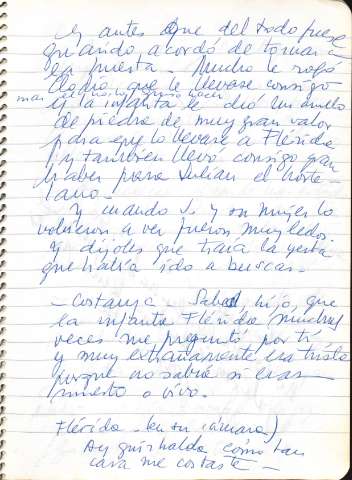 Y antes que del todo fuese
guiando, acordó de tomar
la puesta. Mucho le rogó
que le llevase consigo
mas no lo quiso hacer
Y la infanta le dió un anillo
de piedra de muy gran valor
para que lo llevase a Flérida
y también llevó consigo gran
haber para Julian el horte-
lano.
Y cuando J. y su mujer lo
volvieron a ver fueron muy ledos
Y díjoles que traía la yerba
que había ido a buscar.
- Costanza - Sabed, hijo, que
la infanta Flérida muchas
veces me preguntó por tí
y muy extrañamente era triste
porque no sabía si eras
muerto o vivo.
Flérida - (en su cámara)
Ay grisbalda cómo tan
cara me costaste -